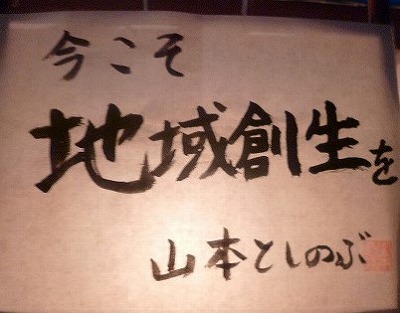 今こそ
地域創生を
山本としのぶ